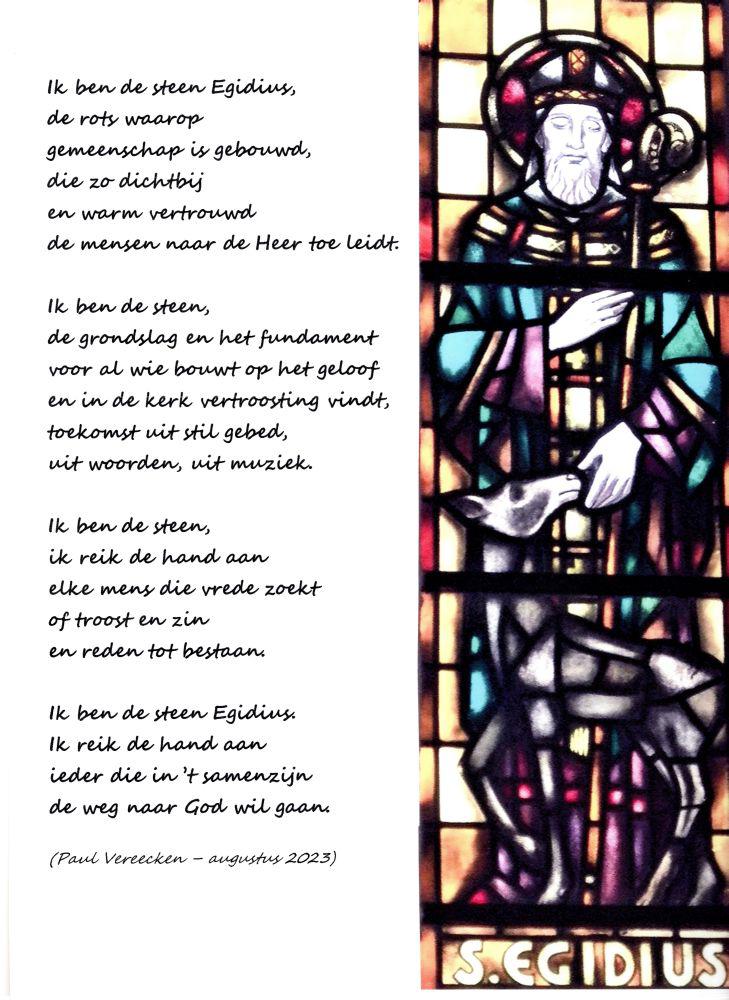 Ik ben de steen Egidius,
de rots waarop
gemeenschap is gebouwd,
die zo dichtbij
en warm vertrouwd
de mensen naar de Heer toe leidt.
Ik ben de steen,
de grondslag en het fundament
voor al wie bouwt op het geloof
en in de kerk vertroosting vindt,
toekomst uit stil gebed,
uit woorden, uit muziek.
Ik ben de steen,
ik reik de hand aan
elke mens die vrede zoekt
of troost en zin
en reden tot bestaan.
Ik ben de steen Egidius.
Ik reik de hand aan
ieder die in 't samenzijn
de weg naar God wil gaan.
(Paul Vereecken – augustus 2023)
S. EGIDIUS